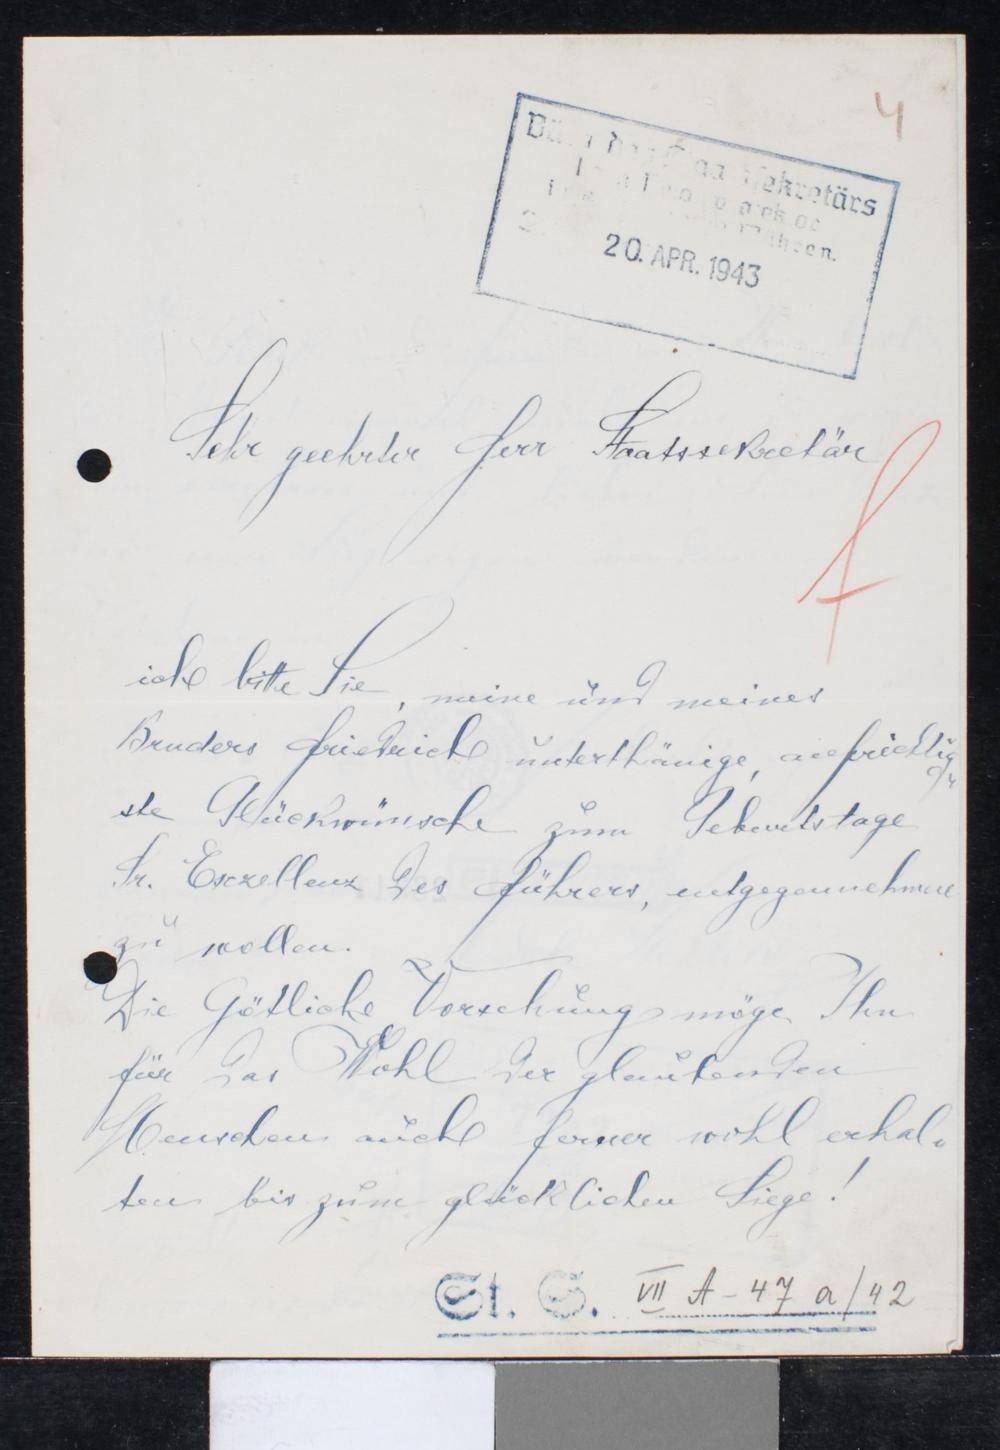 4
Büro des Staatssekretärs
20. APR. 1943
Sehr geehrter Herr Staatssekretär
ich bitte Sie, meine und meines
Bruders Friedrich unterthänige, aufrichtig
ste Glückwünsche zum Geburtstage
Sr. Exzellenz des Führers, entgegennehmen
zu wollen.
Die Götliche Vorsehung möge Ihn
für das Wohl der glaubenden
Menschen auch ferner wohl erhal„
ten bis zum glücklichen Siege!
St. S. VII A - 47 a/42